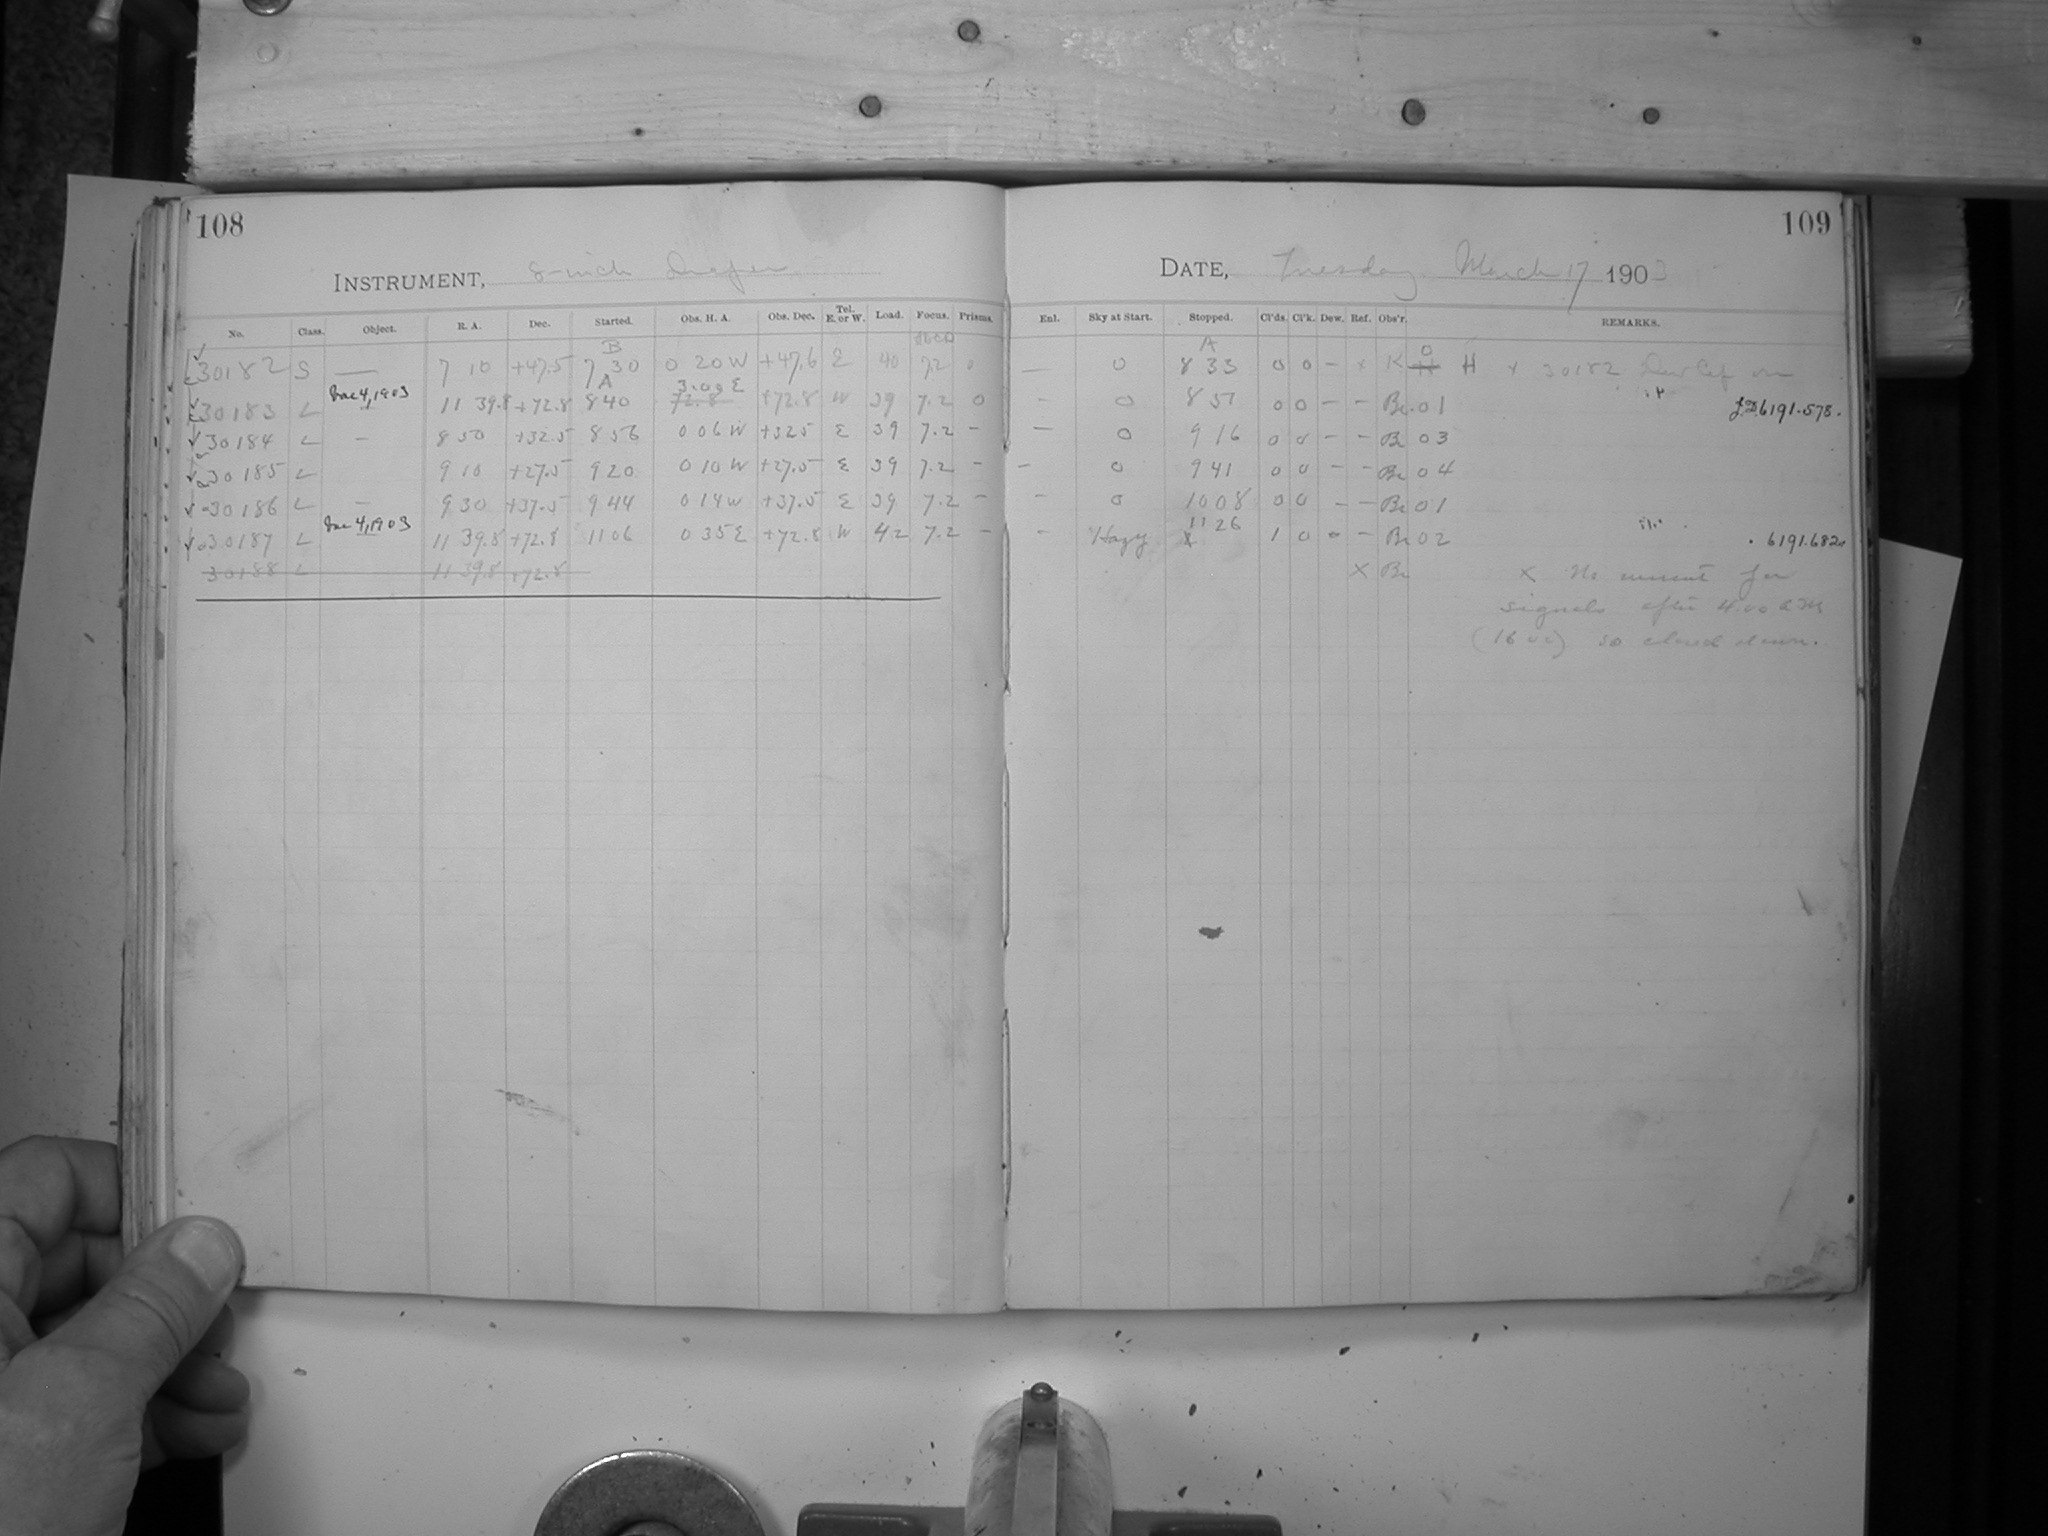 108
INSTRUMENT, 8-inch Draper.
No. Class. Object. R. A. Dec. Started. Obs. H. A. Obs. Dec. Tel. E. or W. Load. Focus. Prisms.
30182 S — 7 10 +47.5 B 7 30 0 20 W +47.6 E 40 72 0
30183 L Var 4, 1903 11 39.8 +72.8 A 8 40 72.8 3.00 E +72.8 W 39 7.2 0
30184 L — 8 50 +32.5 8 56 0 06 W +32.5 E 39 7.2 –
30185 L 9 10 +27.5 9 20 0 10 W +27.5 E 39 7.2 –
30186 L — 9 30 +37.5 9 44 0 14 W +37.5 E 39 7.2 –
30187 L Var 4, 1903 11 39.8 +72.8 11 06 0 35 E +72.8 W 42 7.2 –
30188 L 11 39.8 +72.8
109
DATE, Tuesday. March 17 1903
Enl. Sky at Start. Stopped. Cl'ds. Cl'k. Dew. Ref. Obs'r. REMARKS.
— 0 A 8 33 0 0 – x K H 0 H x 30182 Dew Cap on
– 0 8 51 0 0 – – Br. 01 J.D. 6191.578.
— 0 9 16 0 0 – – Br 03
– 0 9 41 0 0 – – Br 04
– 0 10 08 0 0 – – Br 01
– Hazy 11 26 1 0 0 – Br 02 6191.682
x Br x No current for
signals after 4.00 a m
(16 00) so closed down.